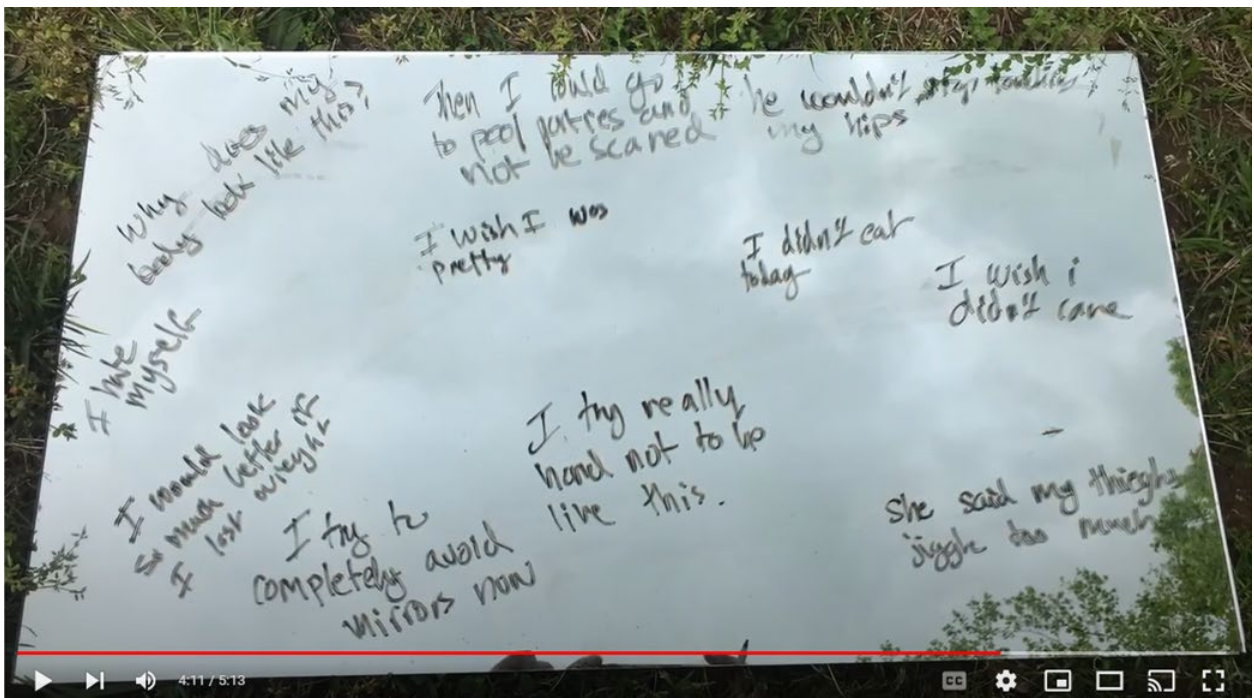 why does my
body look like this?
Then I could go
to pool parties and
not be scared
he wouldn't stop touching
my hips
I wish I was
pretty
I didn't eat
today
I wish i
didn't care
I hate
myself
I would look
so much better if
I lost wieght
I try to
completely avoid
mirrors now
I try really
hard not to be
like this.
She said my thieghs
jiggle too much
4:11 / 5:13
CC